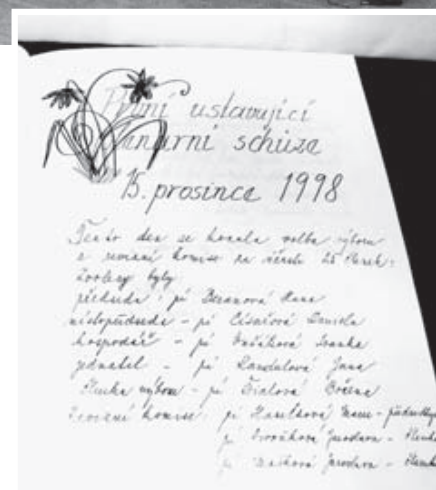 První ustavující
plenární schůze
15. prosince 1998
Tento den se konala volba výboru
a revizní komise za účasti 25 členek.
Zvoleny byly
předseda: pí Hana
místopředseda - pí Císařová Daniela
hospodář - pí Ivanka
jednatel - pí Landulová Jana
členka výboru - pí Fialová Božena
revizní komise: pí Havelková - předsedkyně
pí Dvořáková Jaroslava - členka
pí Mašková Jaroslava - členka